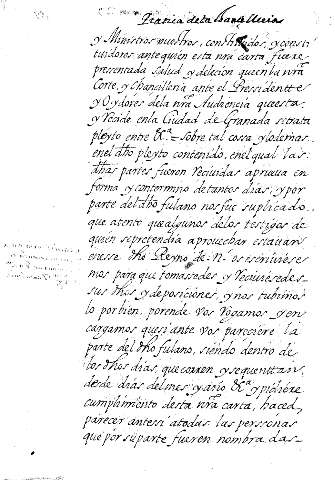 Pratica de la Chancilleria
y Ministros nuestros, constituidos, y consti
tuidores ante quien esta nrã carta fuere
presentada Salud y
Corte, y Chancilleria ante el Presidentte
y Oydores dela nrã Audiencia que esta,
y reside en la Ciudad de Granada se trata
pleyto entre &ª sobre tal cosa, y lo demas
en el dho pleyto contenido, en el qual las
dhas partes fueron recividas aprueva en
forma y con termino de tantos dias, y por
parte del dho fulano nos fue suplicado
que atento que algunos de los testigos de
quien se pretendia aprovechar estavan
en esse dho Reyno de N. os escriviese
mos para que tomasedes y reciviesedes
sus dhos, y deposiciones, y nos tubimos
lo por bien, porende vos rogamos, y en
cargamos que si ante vos pareciere la
parte del dho fulano, siendo dentro de
los dhos dias, que corren y se quenttan
desde dias del mes y año &ª y pidiere
cumplimiento desta nrã carta, haced,
parecer ante si a todas las perssonas
que por su parte fueren nombradas